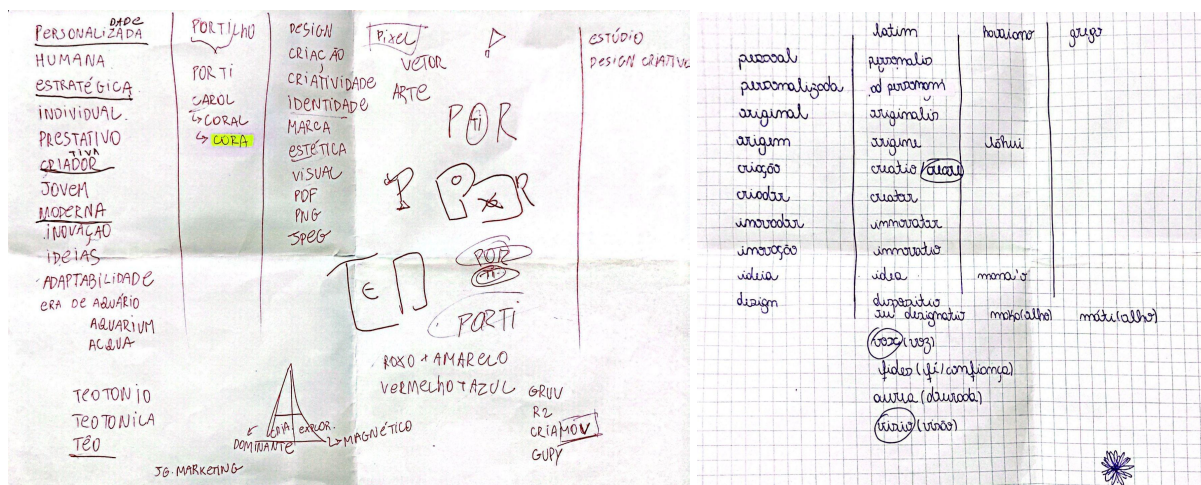 DADE
PERSONALIZADA
HUMANA
ESTRATÉGICA
INDIVIDUAL
PRESTATIVO
TIVA
CRIADOR
JOVEM
MODERNA
INOVAÇÃO
IDEIAS
ADAPTABILIDADE
ERA DE AQUÁRIO
AQUARIUM
ACQUA
TEOTONIO
TEOTONICA
TÉO
PORTILHO
PORTI
CAROL
CORAL
CORA
DESIGN
CRIAÇÃO
CRIATIVIDADE
IDENTIDADE
MARCA
ESTÉTICA
VISUAL
PDF
PNG
JPEG
PixEL
VETOR
ARTE
P TI R
P
POR
TI
PORTI
ROXO + AMARELO
VERMELHO + AZUL
CRIA EXPLOR.
DOMINANTE
MAGNÉTICO
JG. MARKETING
GRUV
R2
CRIAMOV
GUPY
ESTÚDIO
DESIGN CRIATIVE
latim havaiano grego
pessoal personalis
personalizada ad personam
original originalis
origem origine lōhui
criação creatio (creare)
criador creator
inovador innovator
inovação innovatio
ideia idea mana'o
design dispositio
seu designatio mako (alho) máti (olho)
vox (voz)
fides (fé/confiança)
aurea (dourada)
visio (visão)